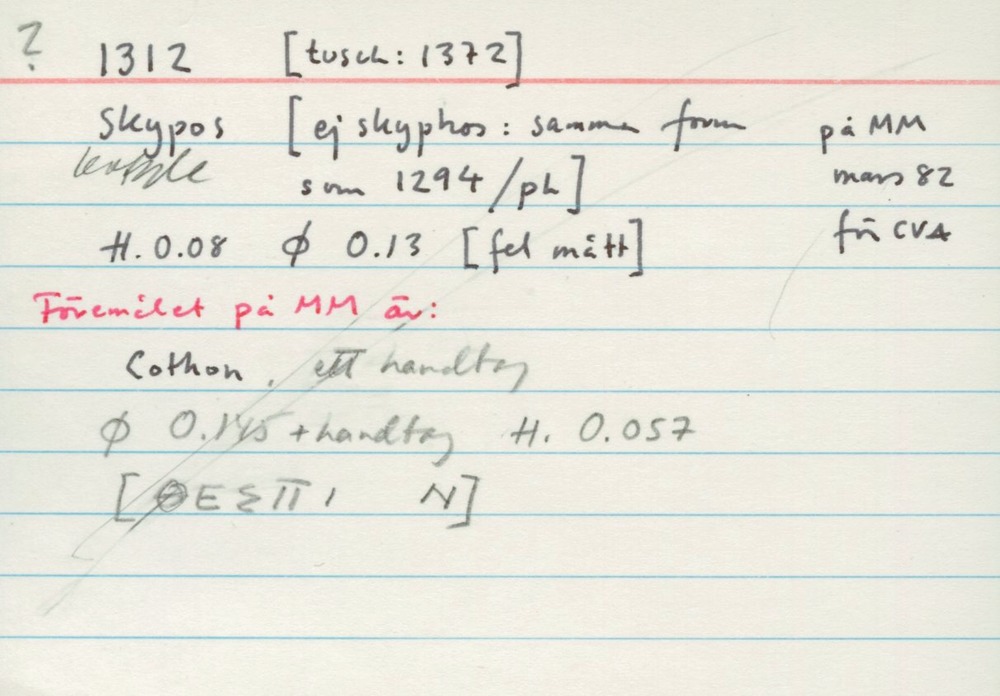 ? 1312 [tusch: 1372]
Skypos [ej skyphos: samma form på MM
som 1294/ph] mars 82
H. 0.08 ϕ 0.13 [fel mått] för CVA
Föremålet på MM är:
Cothon. ett handtag
ϕ 0.145 + handtag H. 0.057
[ΘΕΣΠΙ Ν]